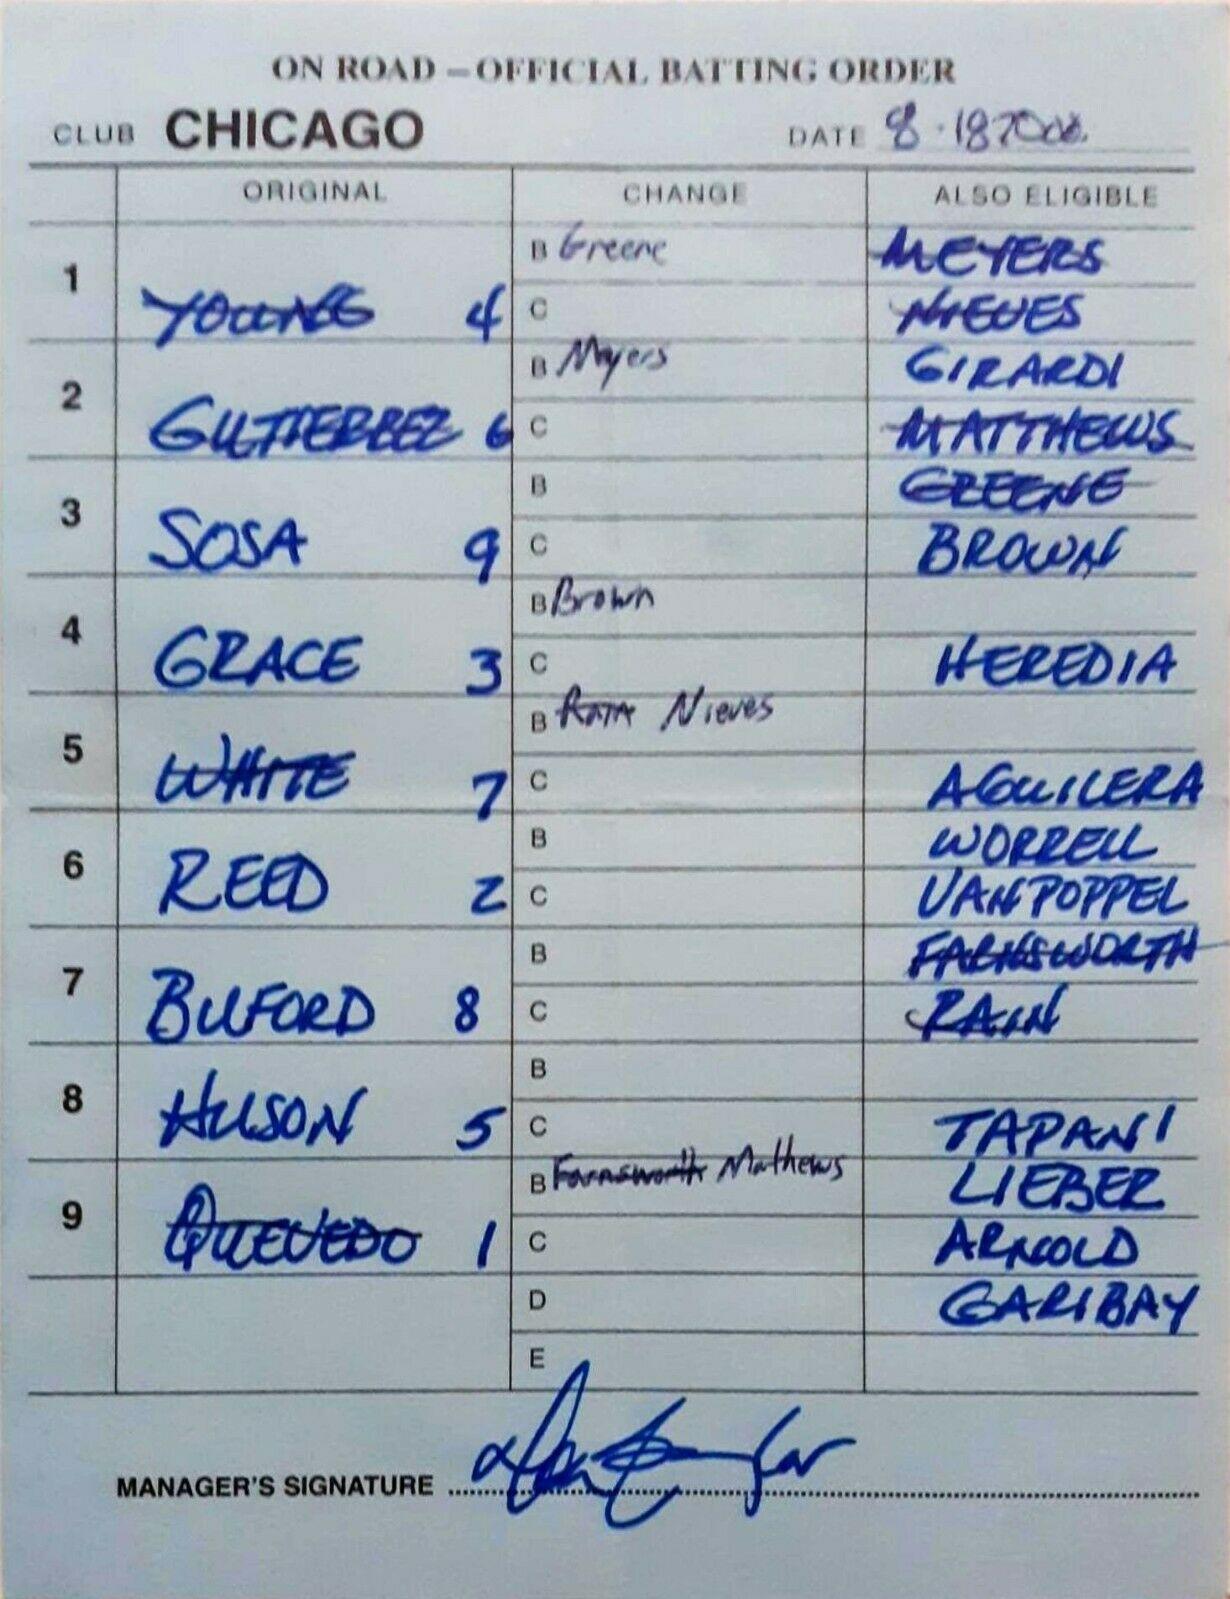 ON ROAD – OFFICIAL BATTING ORDER
CLUB CHICAGO DATE 8-18 2000
ORIGINAL CHANGE ALSO ELIGIBLE
1 YOUNG 4 B Greene MEYERS
C NIEVES
2 GUTIERREZ 6 B Meyers GIRARDI
C MATTHEWS
3 SOSA 9 B GREENE
C BROWN
4 GRACE 3 B Brown
C HEREDIA
5 WHITE 7 B Rain Nieves
C AGUILERA
6 REED 2 B WORRELL
C VANPOPPEL
7 BUFORD 8 B FARNSWORTH
C RAIN
8 HUSON 5 B
C TAPANI
9 QUEVEDO 1 B Farnsworth Mathews LIEBER
C ARNOLD
D GARIBAY
E
MANAGER'S SIGNATURE